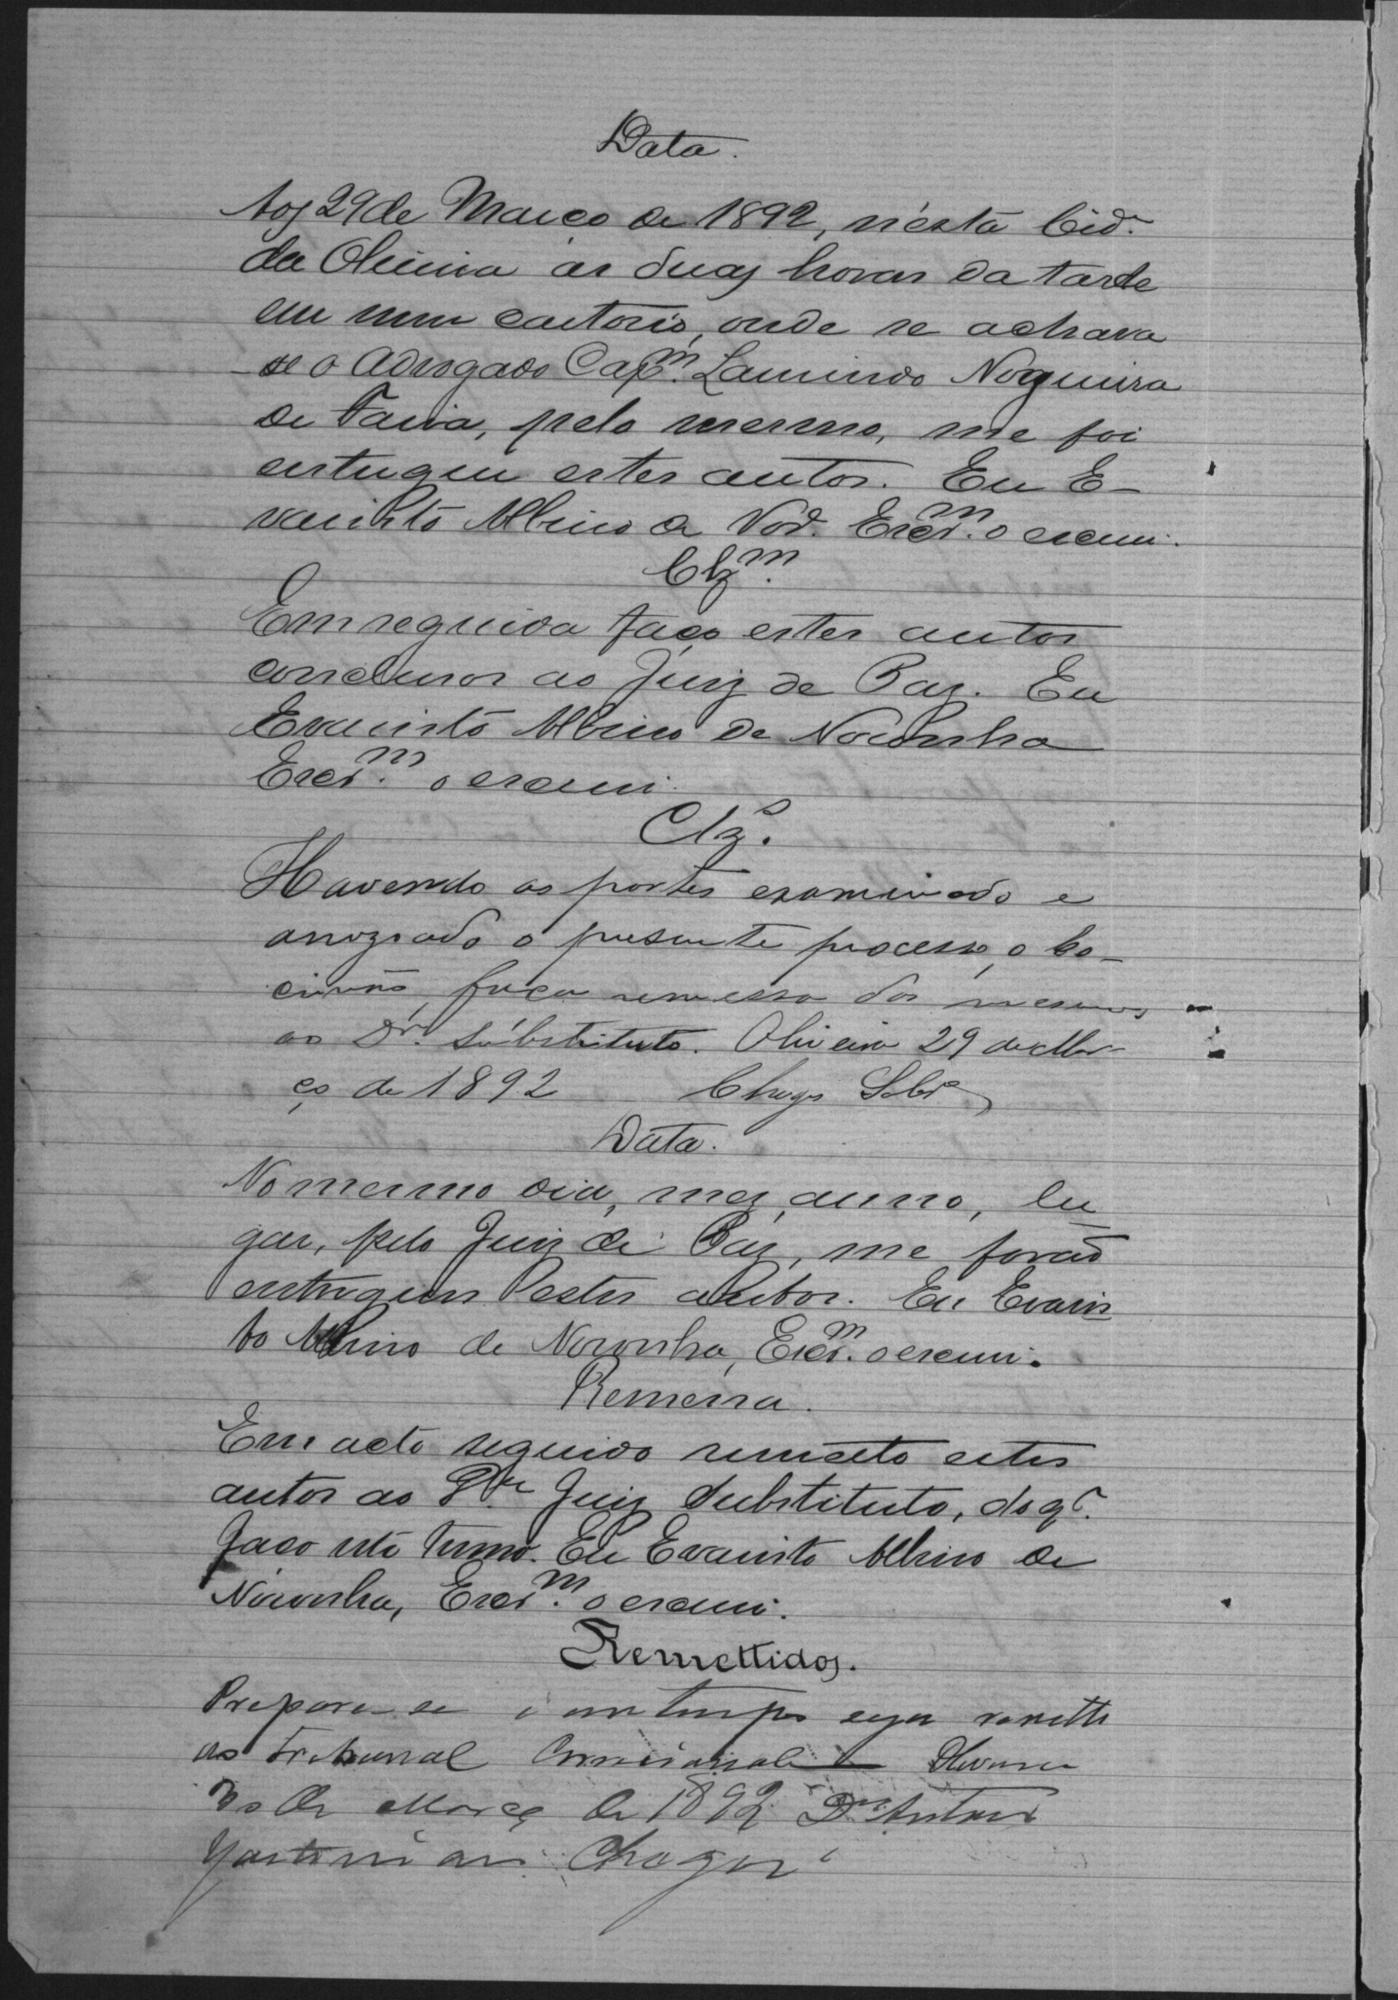 Data.
Aos 29 de Março de 1892, n'esta Cid.e
da Oliveira as duas horas da tarde
em meu cartorio, onde se achava
se o Advogado Cap.m Laurindo Nogueira
de Faria, pelo mesmo, me foi
entregue estes autos. Eu E-
varisto Albino de Nor.a Escr.m o escrevi.
Clz.m
Em seguida faço estes autos
conclusos ao Juiz de Paz. Eu
Evaristo Albino de Noronha
Escr.m o escrevi.
Clz.s
Havendo as partes examinado e
arrazoado o presente processo, o Es-
crivão, faça remessa dos mesmos
ao Dr. Substituto. Oliveira 29 de Mar-
ço de 1892 Chagas Sobr.o
Data.
No mesmo dia, mez, anno, lu
gar, pelo Juiz de Paz, me forão
entregues estes autos. Eu Evaris
to Albino de Noronha, Escr.m o escrevi.
Remessa.
Em acto seguido remetto estes
autos ao Dr. Juiz Substituto, do q.e
faço este termo. Eu Evaristo Albino de
Noronha, Escr.m o escrevi.
Remettidos.
Prepare-se e em tempo seja remetti
ao Tribunal Correccional Oliveira
de Março de 1892 Dr. Antonio
Chagas